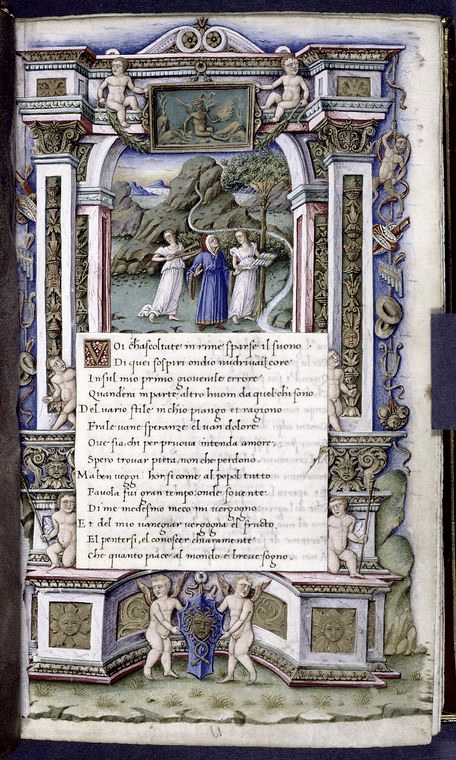 VOI ch'ascoltate in rime sparse il suono
Di quei sospiri ondio nudriva il core
In sul mio primo giovenile errore
Quandera in parte altro huom da quel ch'i sono
Del vario stile in ch'io piango et ragiono
Fra le vane speranze el van dolore
Ove sia chi per pruova intenda amore,
Spero trovar pieta, non che perdono.
Ma ben veggi hor si come al popol tutto
Favola fui gran tempo: onde sovente
Di me medesmo meco mi vergogno:
Et del mio vanegiar vergogna el fructo,
El pentersi, el conoscer chiaramente
Che quanto piace al mondo e breve sogno.
61